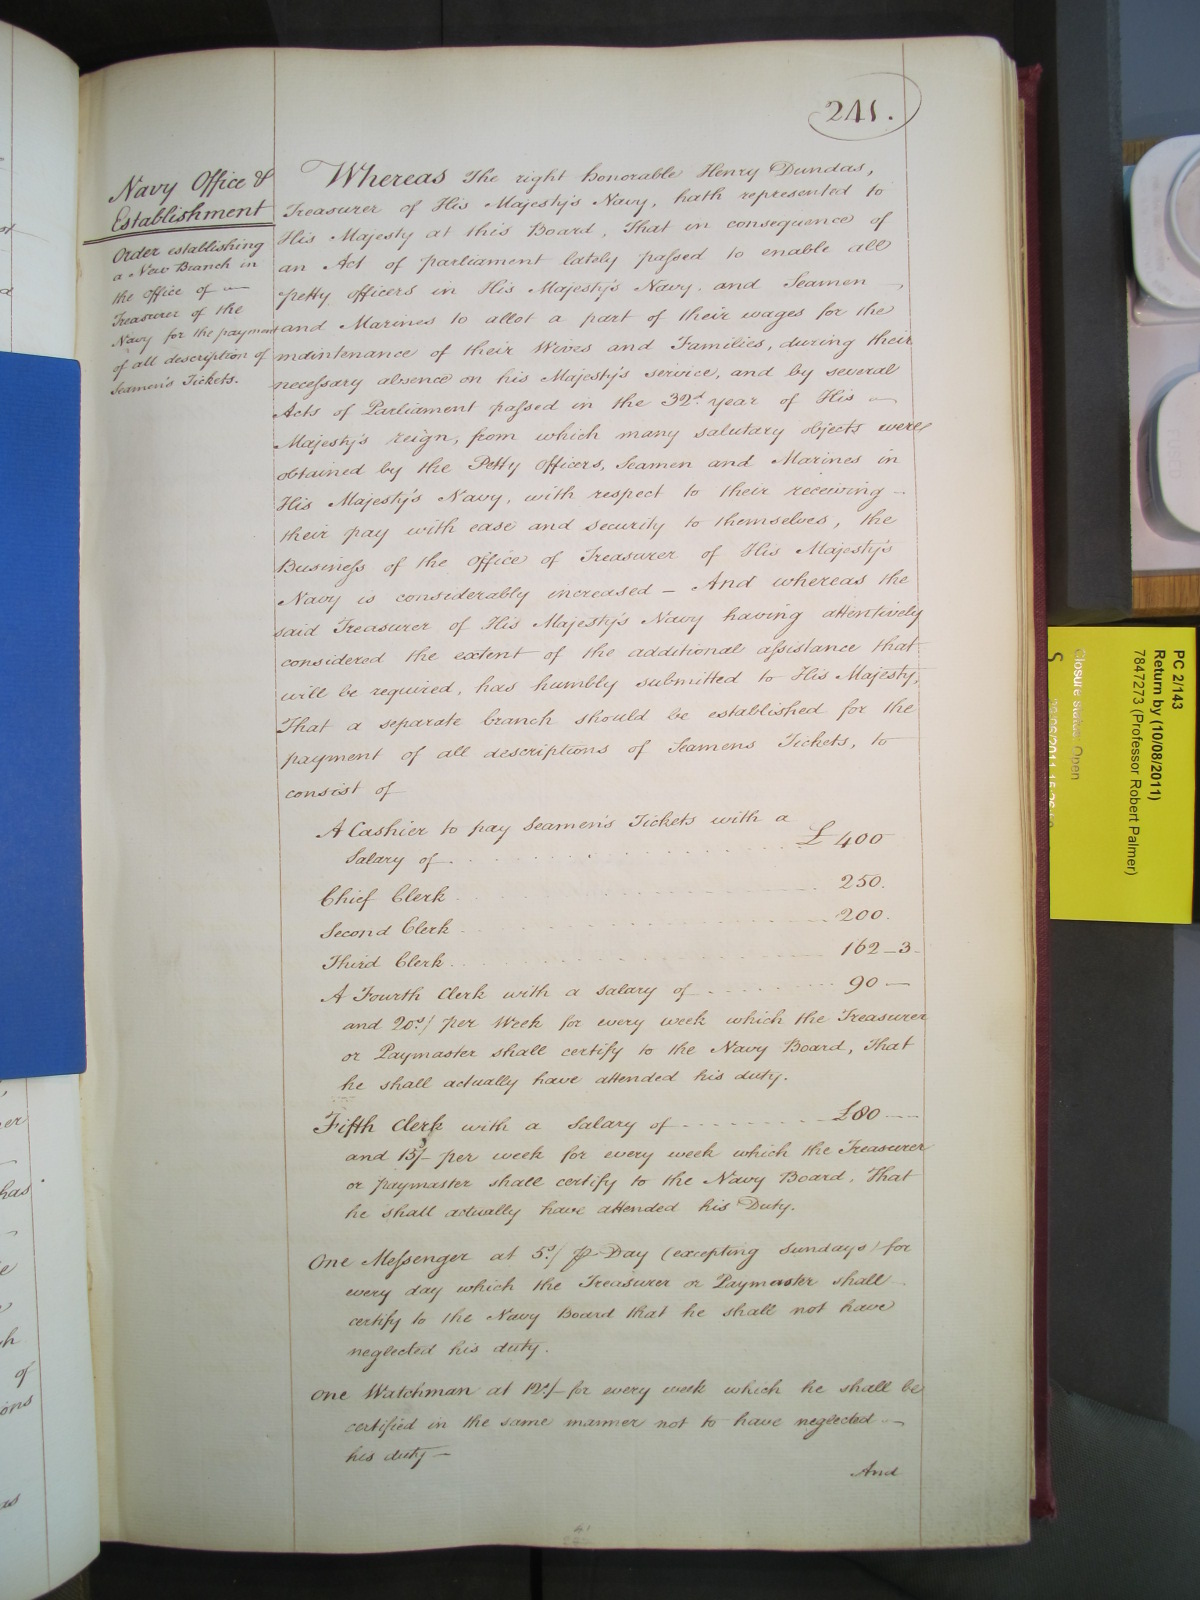 241.
Navy Office &
Establishment
Order establishing
a New Branch in
the office of
Treasurer of the
Navy for the payment
of all description of
Seamen's Tickets.
Whereas The right honorable Henry Dundas,
Treasurer of His Majesty's Navy, hath represented to
His Majesty at this Board, That in consequence of
an Act of parliament lately passed to enable all
petty officers in His Majesty's Navy, and Seamen,
and Marines to allot a part of their wages for the
maintenance of their Wives and Families, during their
necessary absence on his Majesty's service, and by several
Acts of Parliament passed in the 32d. year of His
Majesty's reign, from which many salutary objects were
obtained by the Petty Officers, Seamen and Marines in
His Majesty's Navy, with respect to their receiving
their pay with ease and security to themselves, the
Business of the Office of Treasurer of His Majesty's
Navy is considerably increased – And whereas the
said Treasurer of His Majesty's Navy having attentively
considered the extent of the additional assistance that
will be required, has humbly submitted to His Majesty,
That a separate branch should be established for the
payment of all descriptions of Seamens Tickets, to
consist of
A Cashier to pay Seamen's Tickets with a
Salary of £400
Chief Clerk 250.
Second Clerk 200.
Third Clerk 162–3.
A Fourth Clerk with a Salary of 90 –
and 20s/ per Week for every week which the Treasurer
or Paymaster shall certify to the Navy Board, That
he shall actually have attended his duty.
Fifth Clerk with a Salary of £80 –
and 15s/– per week for every week which the Treasurer
or paymaster shall certify to the Navy Board, That
he shall actually have attended his Duty.
One Messenger at 5s/ ⅌ Day (excepting Sundays) for
every day which the Treasurer or Paymaster shall
certify to the Navy Board that he shall not have
neglected his duty.
One Watchman at 12s/– for every week which he shall be
certified in the same manner not to have neglected
his duty –
And
PC 2/143
Return by (10/08/2011)
7847273 (Professor Robert Palmer)
Closure status: Open